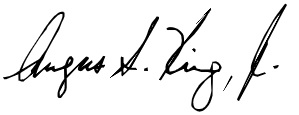 Angus S. King, Jr.